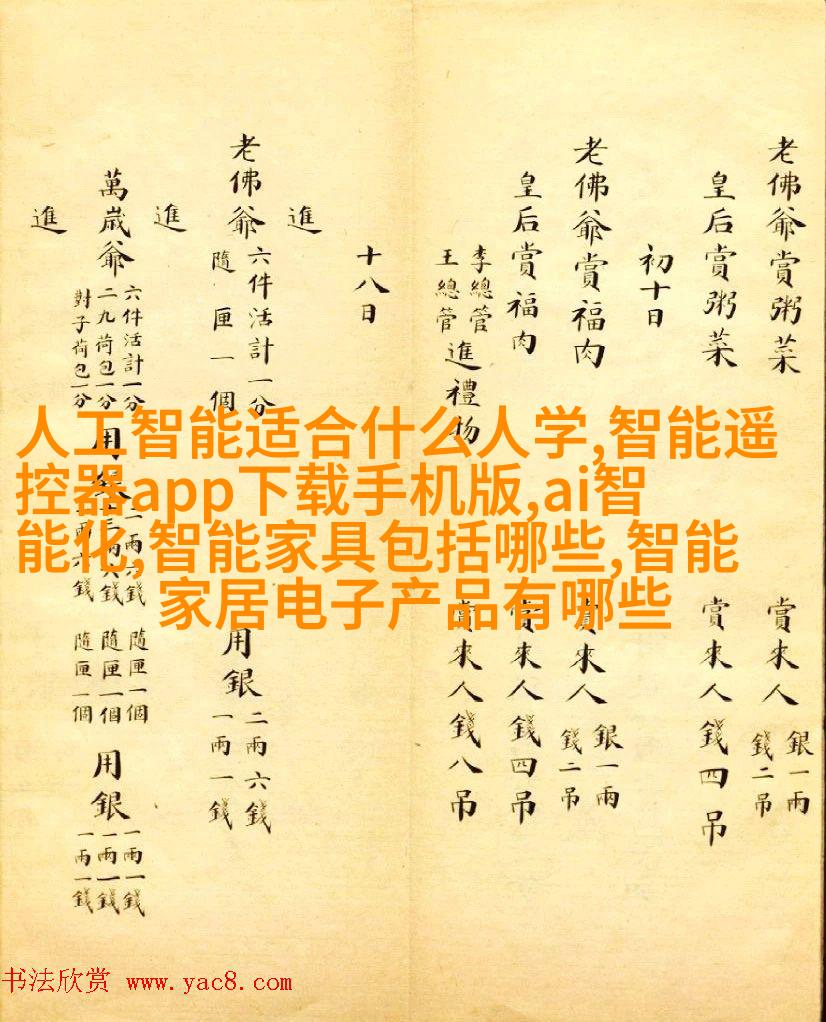 老佛爺賞粥菜 賞來人 銀一兩 錢二吊
皇后賞粥菜 賞來人錢四吊
初十日
老佛爺賞福肉 賞來人 銀一兩 錢二吊
皇后賞福肉 賞來人錢四吊
李總管
王總管
進禮物 賞來人錢八吊
十八日
進
老佛爺 六件活計一分
隨匣一個
用銀 二兩六錢
一兩一錢
進
萬歲爺 六件活計一分
二九荷包一分
對子荷包一分
隨匣一個
隨匣一個
隨匣一個
用銀 一兩一錢
一兩一錢
一兩一錢
進
人工智能适合什么人学,智能遥
控器app下载手机版,ai智
能化,智能家具包括哪些,智能
家居电子产品有哪些
书法欣赏 www.yac8.com